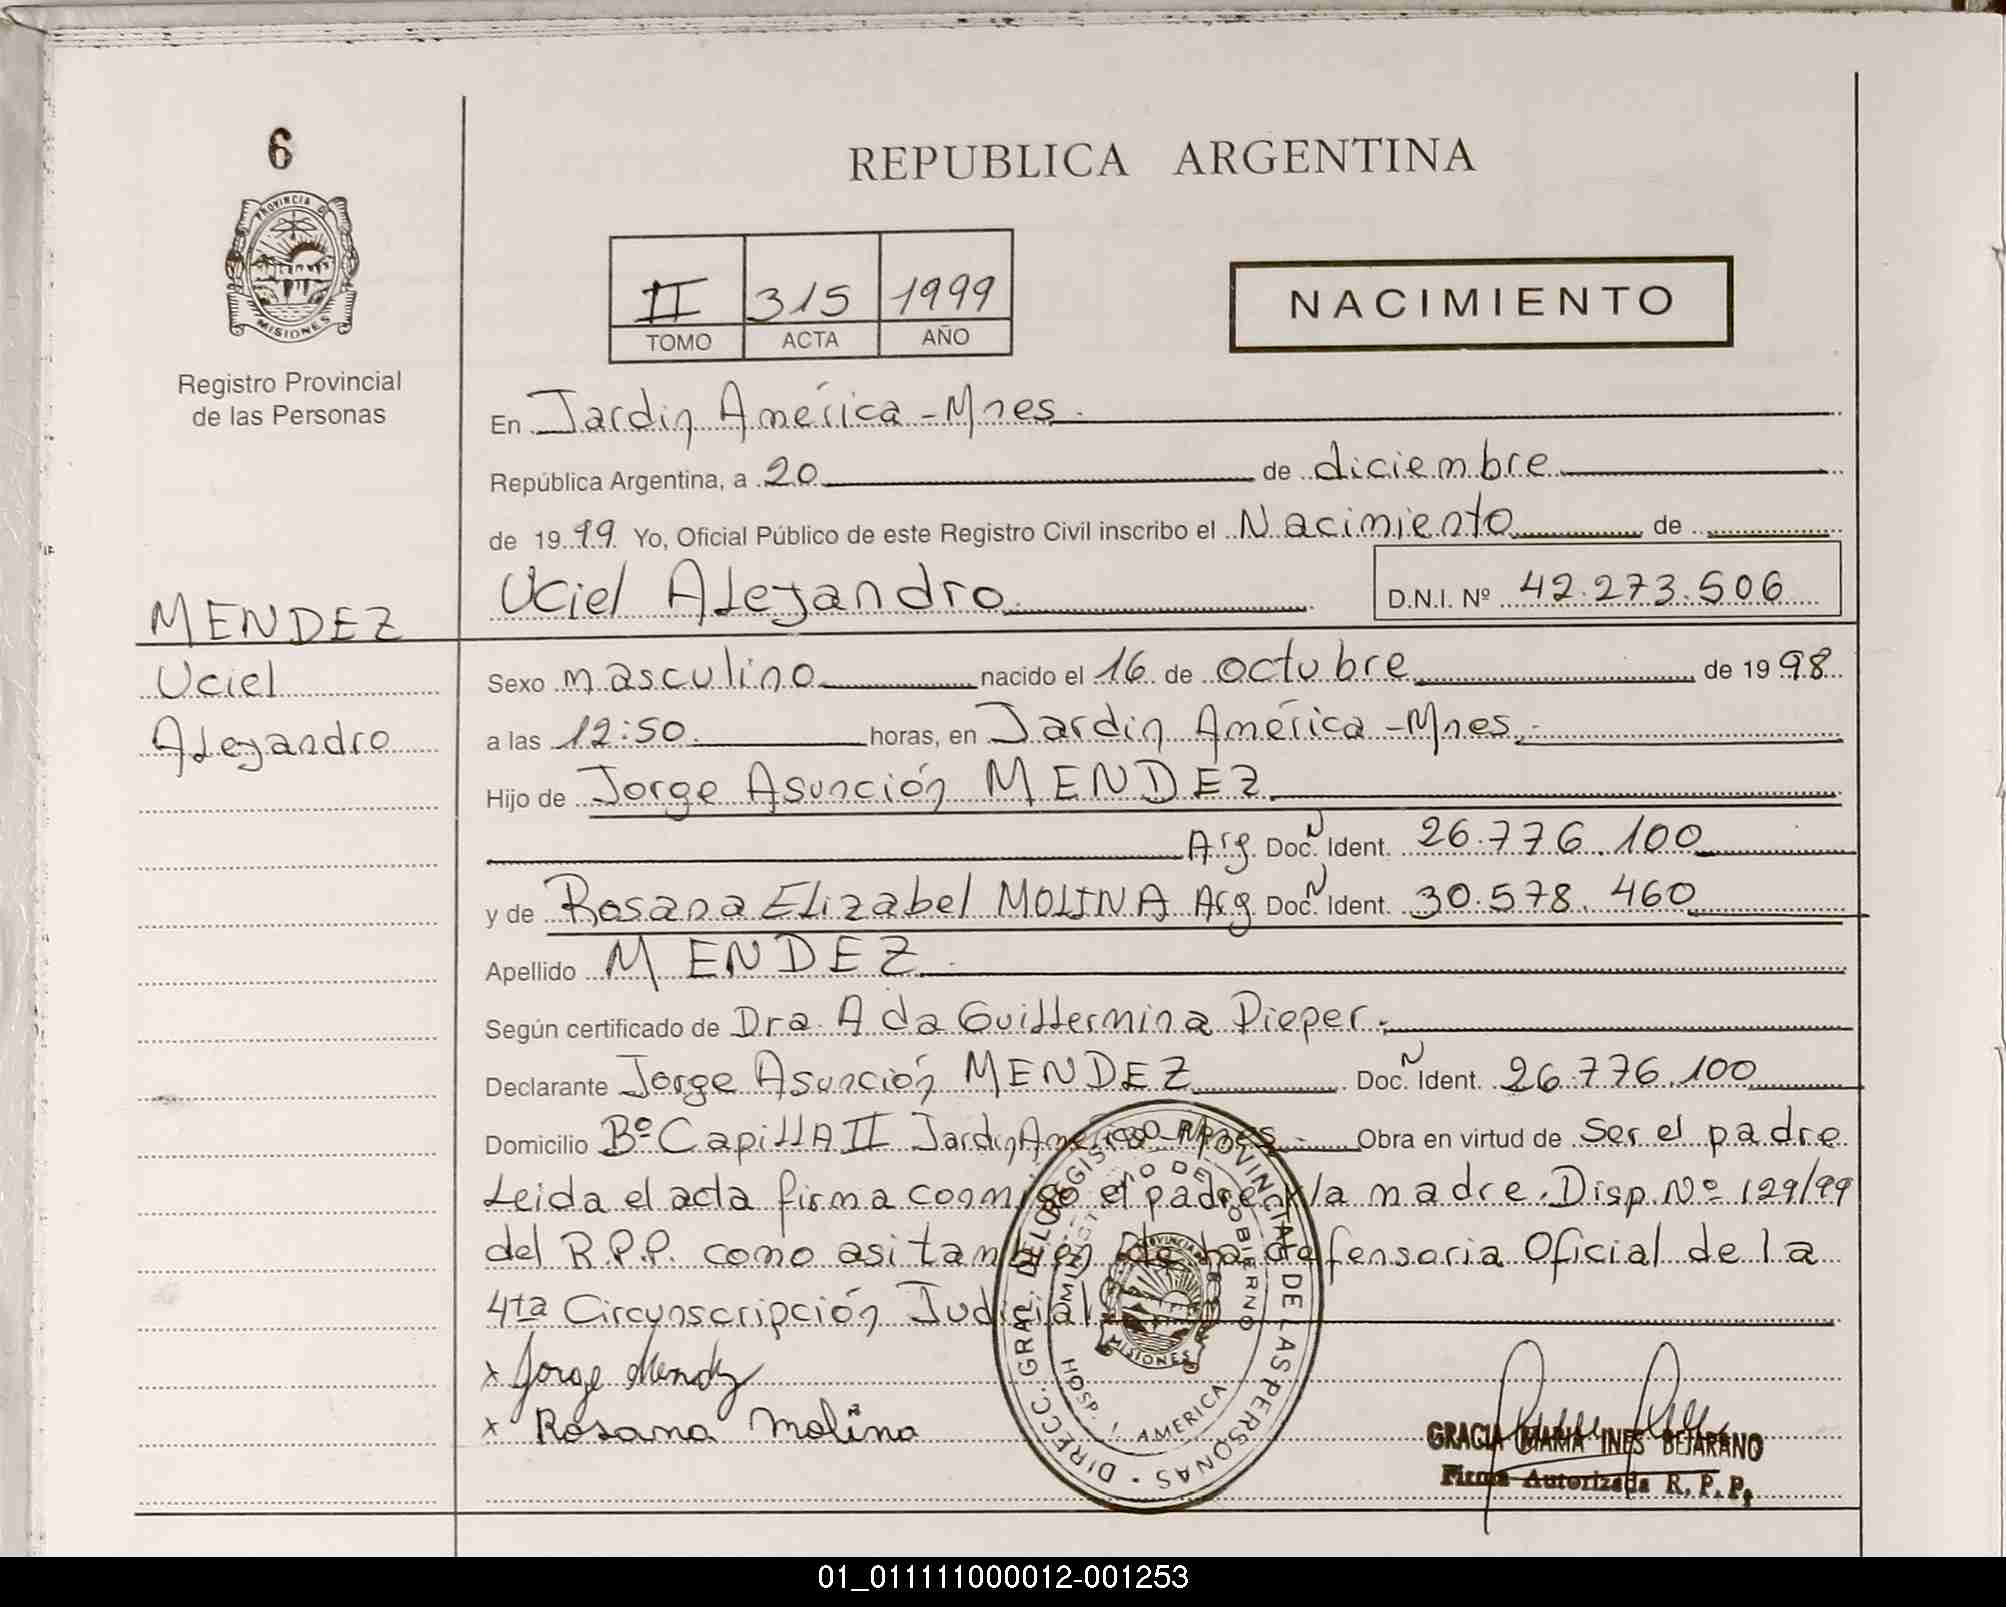 6
PROVINCIA D
MISIONES
Registro Provincial
de las Personas
REPUBLICA ARGENTINA
II 315 1999
TOMO ACTA AÑO
NACIMIENTO
En Jardin América - Mnes.
República Argentina, a 20 de diciembre
de 1999 Yo, Oficial Público de este Registro Civil inscribo el Nacimiento de
Uciel Alejandro D.N.I. Nº 42.273.506
MENDEZ
Uciel
Alejandro
Sexo masculino nacido el 16 de octubre de 1998
a las 12:50 horas, en Jardin América - Mnes.
Hijo de Jorge Asunción MENDEZ
Arg. Doc. N Ident. 26.776.100
y de Rosana Elizabel MOLINA Arg Doc. N Ident. 30.578.460
Apellido MENDEZ
Según certificado de Dra. Ada Guillermina Dieper.
Declarante Jorge Asunción MENDEZ Doc. N Ident. 26.776.100
Domicilio Bº Capilla II Jardin América - Mnes. Obra en virtud de Ser el padre
Leida el acta firma conmigo el padre y la madre. Disp. Nº 129/99
del R.P.P. como asi tambien de la defensoria Oficial de la
4ta Circunscripción Judicial
x Jorge Mendez
x Rosana Molina
DIRECC. GRAL. DEL REGISTRO PROVINCIAL DE LAS PERSONAS
MINISTERIO DE GOBIERNO
PROVINCIA
MISIONES
HOSP. J. AMERICA
GRACIA MARIA INES BEJARANO
Firma Autorizada R. P. P.
01_011111000012-001253